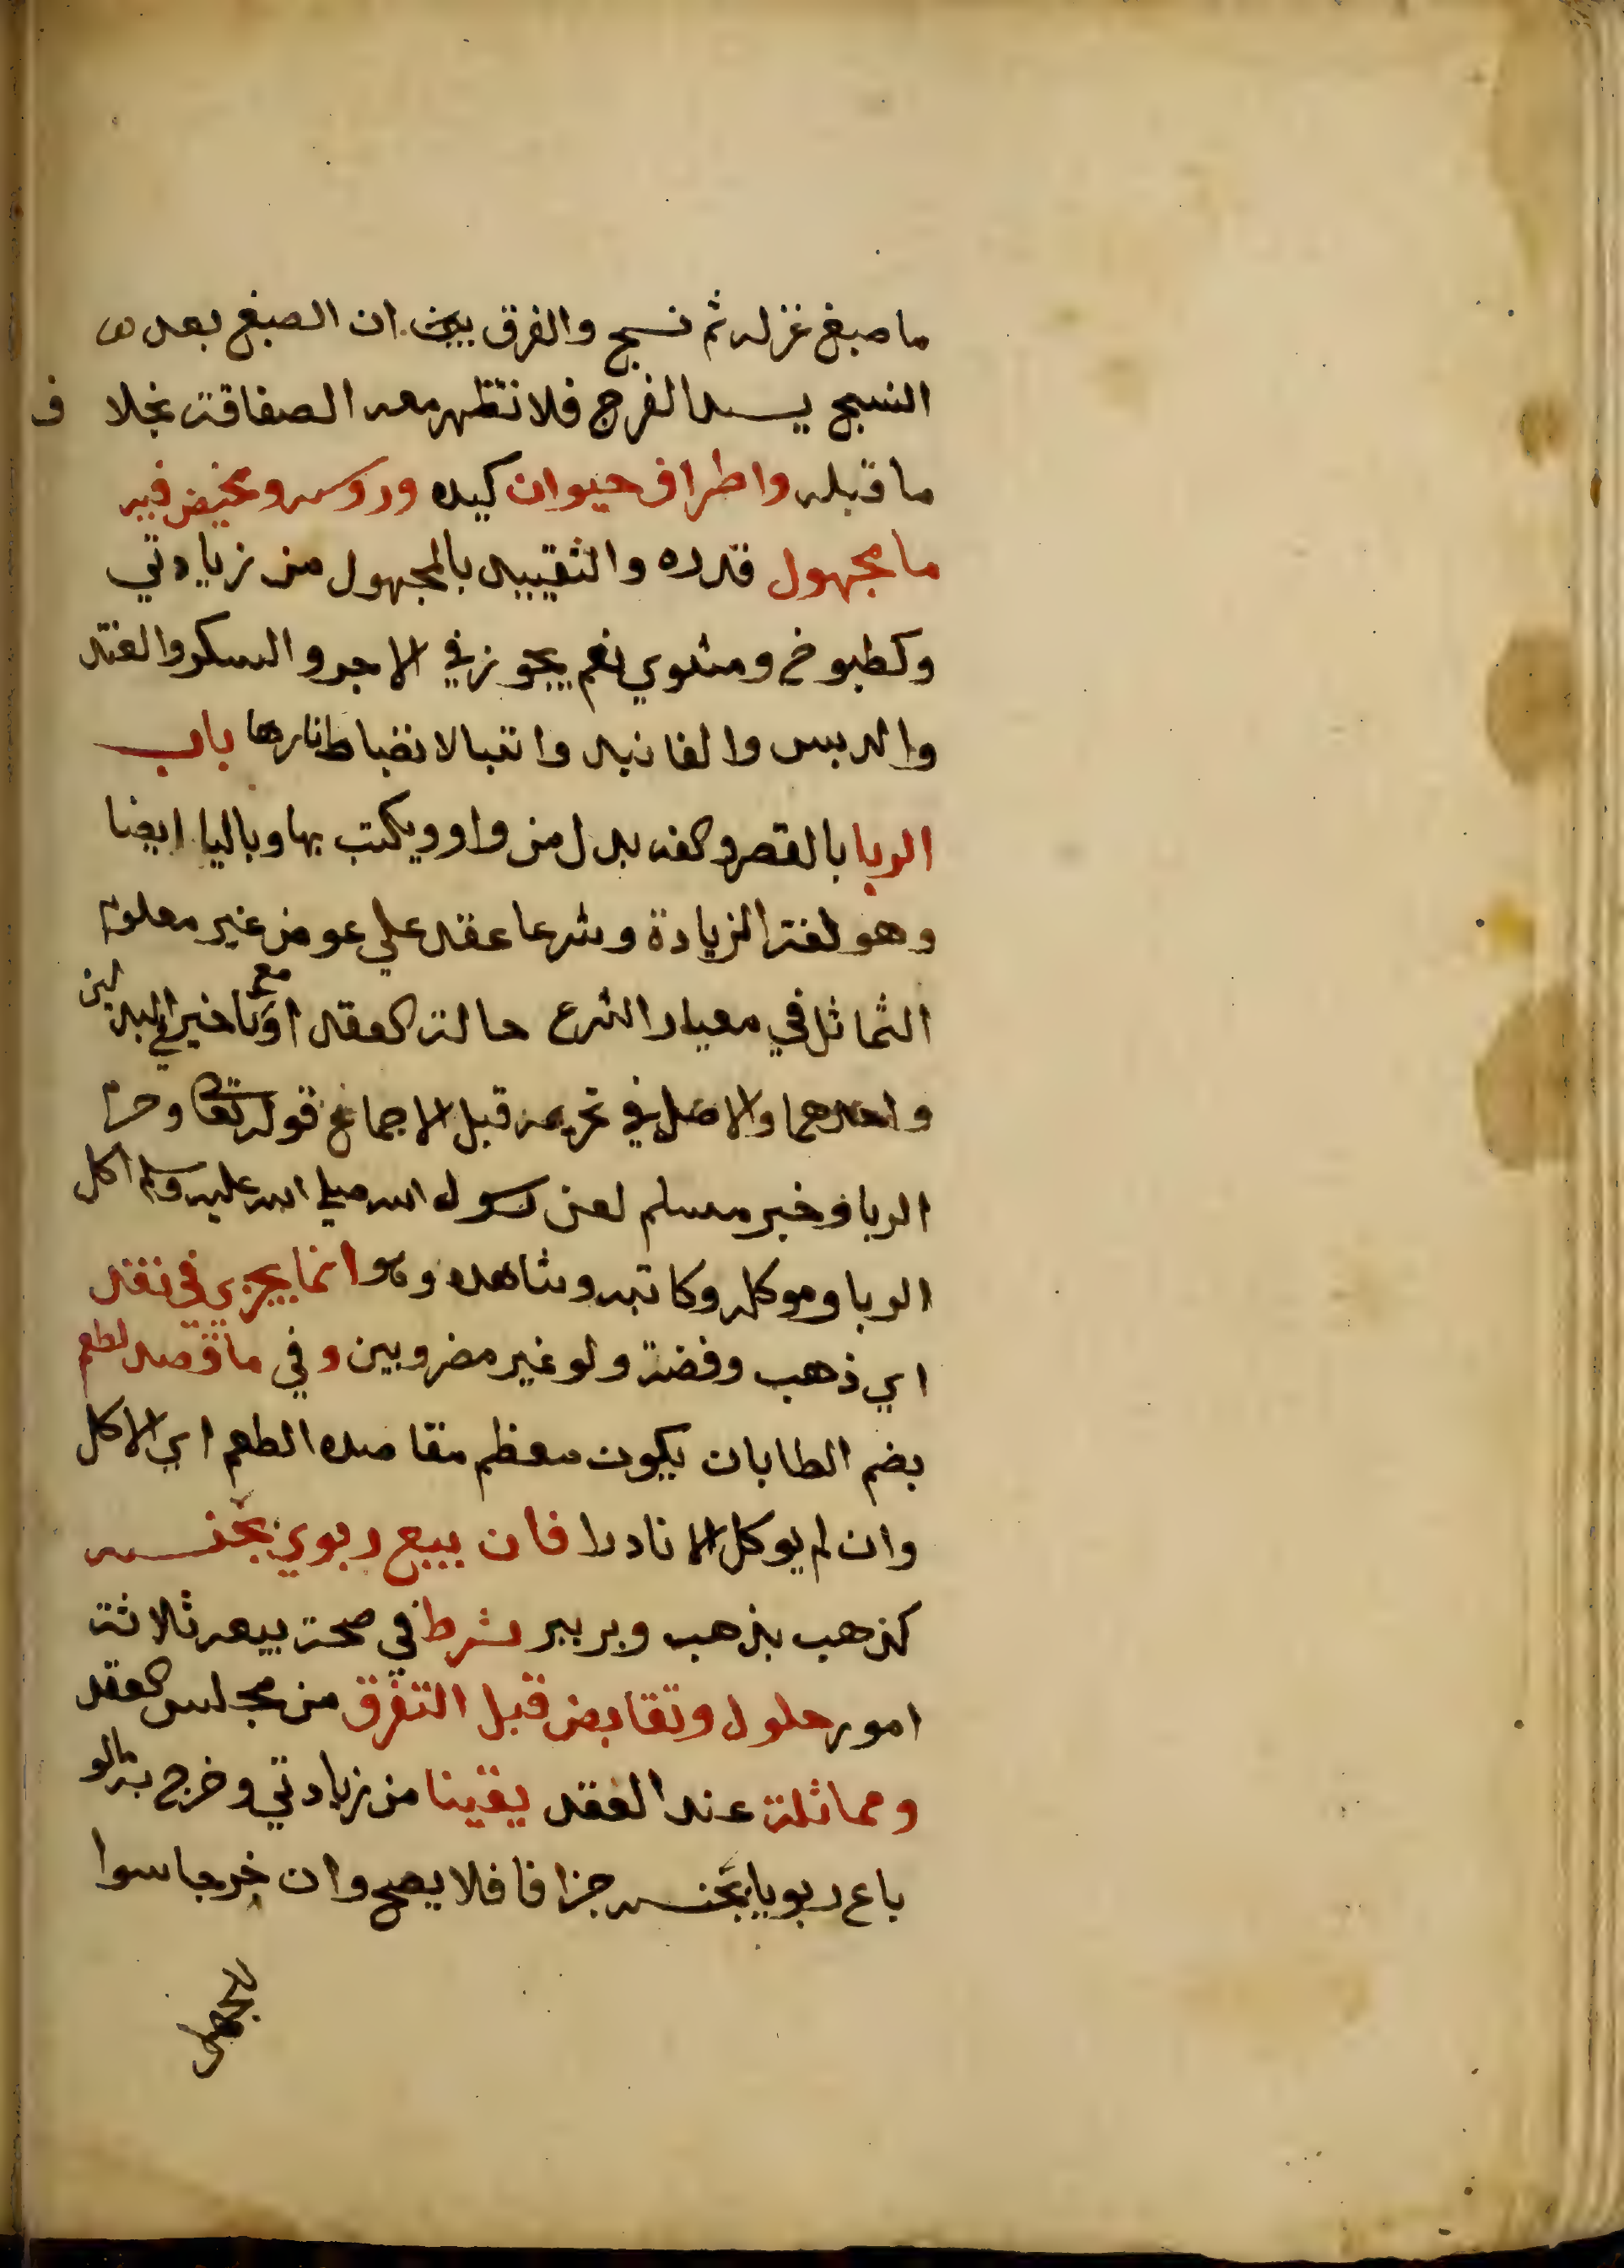 ما صبغ غزله ثم نسج والفرق بين ان الصبغ بعد
النسج يسد الفرج فلا تظهر معه الصفاقة بخلاف
ما قبله واطراف حيوان كيده وروسه ومخيض فيه
ما مجهول قدره والتقييد بالمجهول من زيادتي
وكطبوخ ومشوي نعم يجوز في الاجر والسكر والقند
والدبس والفانيد واللبا لانضباط نارها باب
الربا بالقصر والفه بدل من واو ويكتب بها وباليا ايضا
وهو لغة الزيادة وشرعا عقد علي عوض غير معلوم
التماثل في معيار الشرع حالة العقد او مع تاخير في البدلين
واحدهما والاصل في تحريمه قبل الاجماع قوله تعالى وحرم
الربا وخبر مسلم لعن رسول الله صلي الله عليه وسلم اكل
الربا وموكله وكاتبه وشاهده وهو انما يجزي في نقد
اي ذهب وفضة ولو غير مضروبين وفي ما قصد لطعم
بضم الطا بان يكون معظم مقاصده الطعم اي الاكل
وان لم يوكل الا نادرا فان بيع ربوي بجنسه
كذهب بذهب وبر ببر شرط في صحة بيعه ثلاثة
امور حلول وتقابض قبل التفرق من مجلس العقد
ومماثلة عند العقد يقينا من زيادتي وخرج به مالو
باع ربويا بجنسه جزافا فلا يصح وان خرجا سوا
للجهل